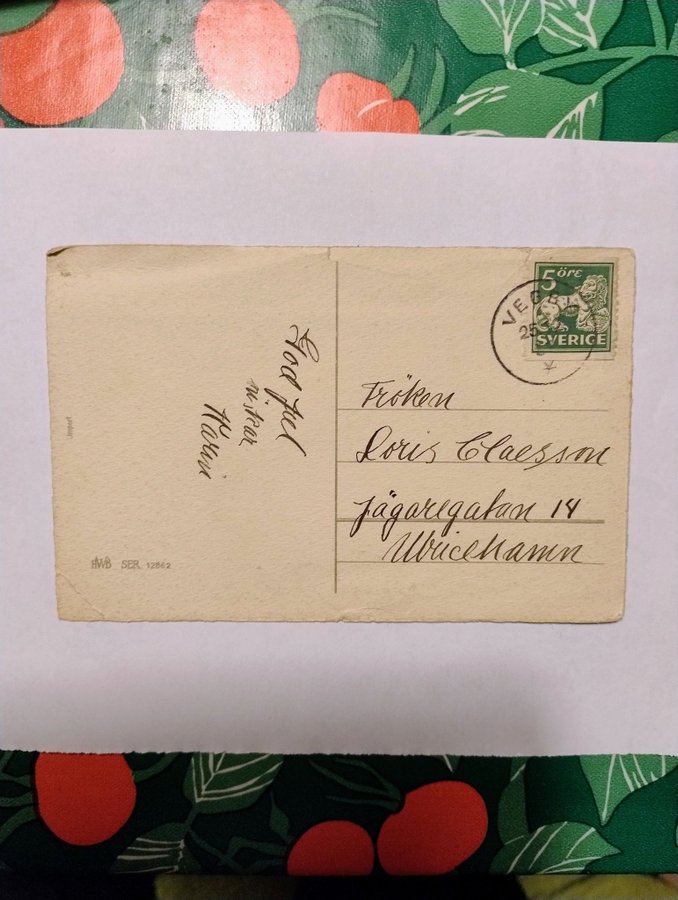 God Jul
önskar
Karin
Import
HWB SER. 12862
5 ÖRE
SVERIGE
VEGBY
Fröken
Doris Claesson
Jägaregatan 14
Ulricehamn